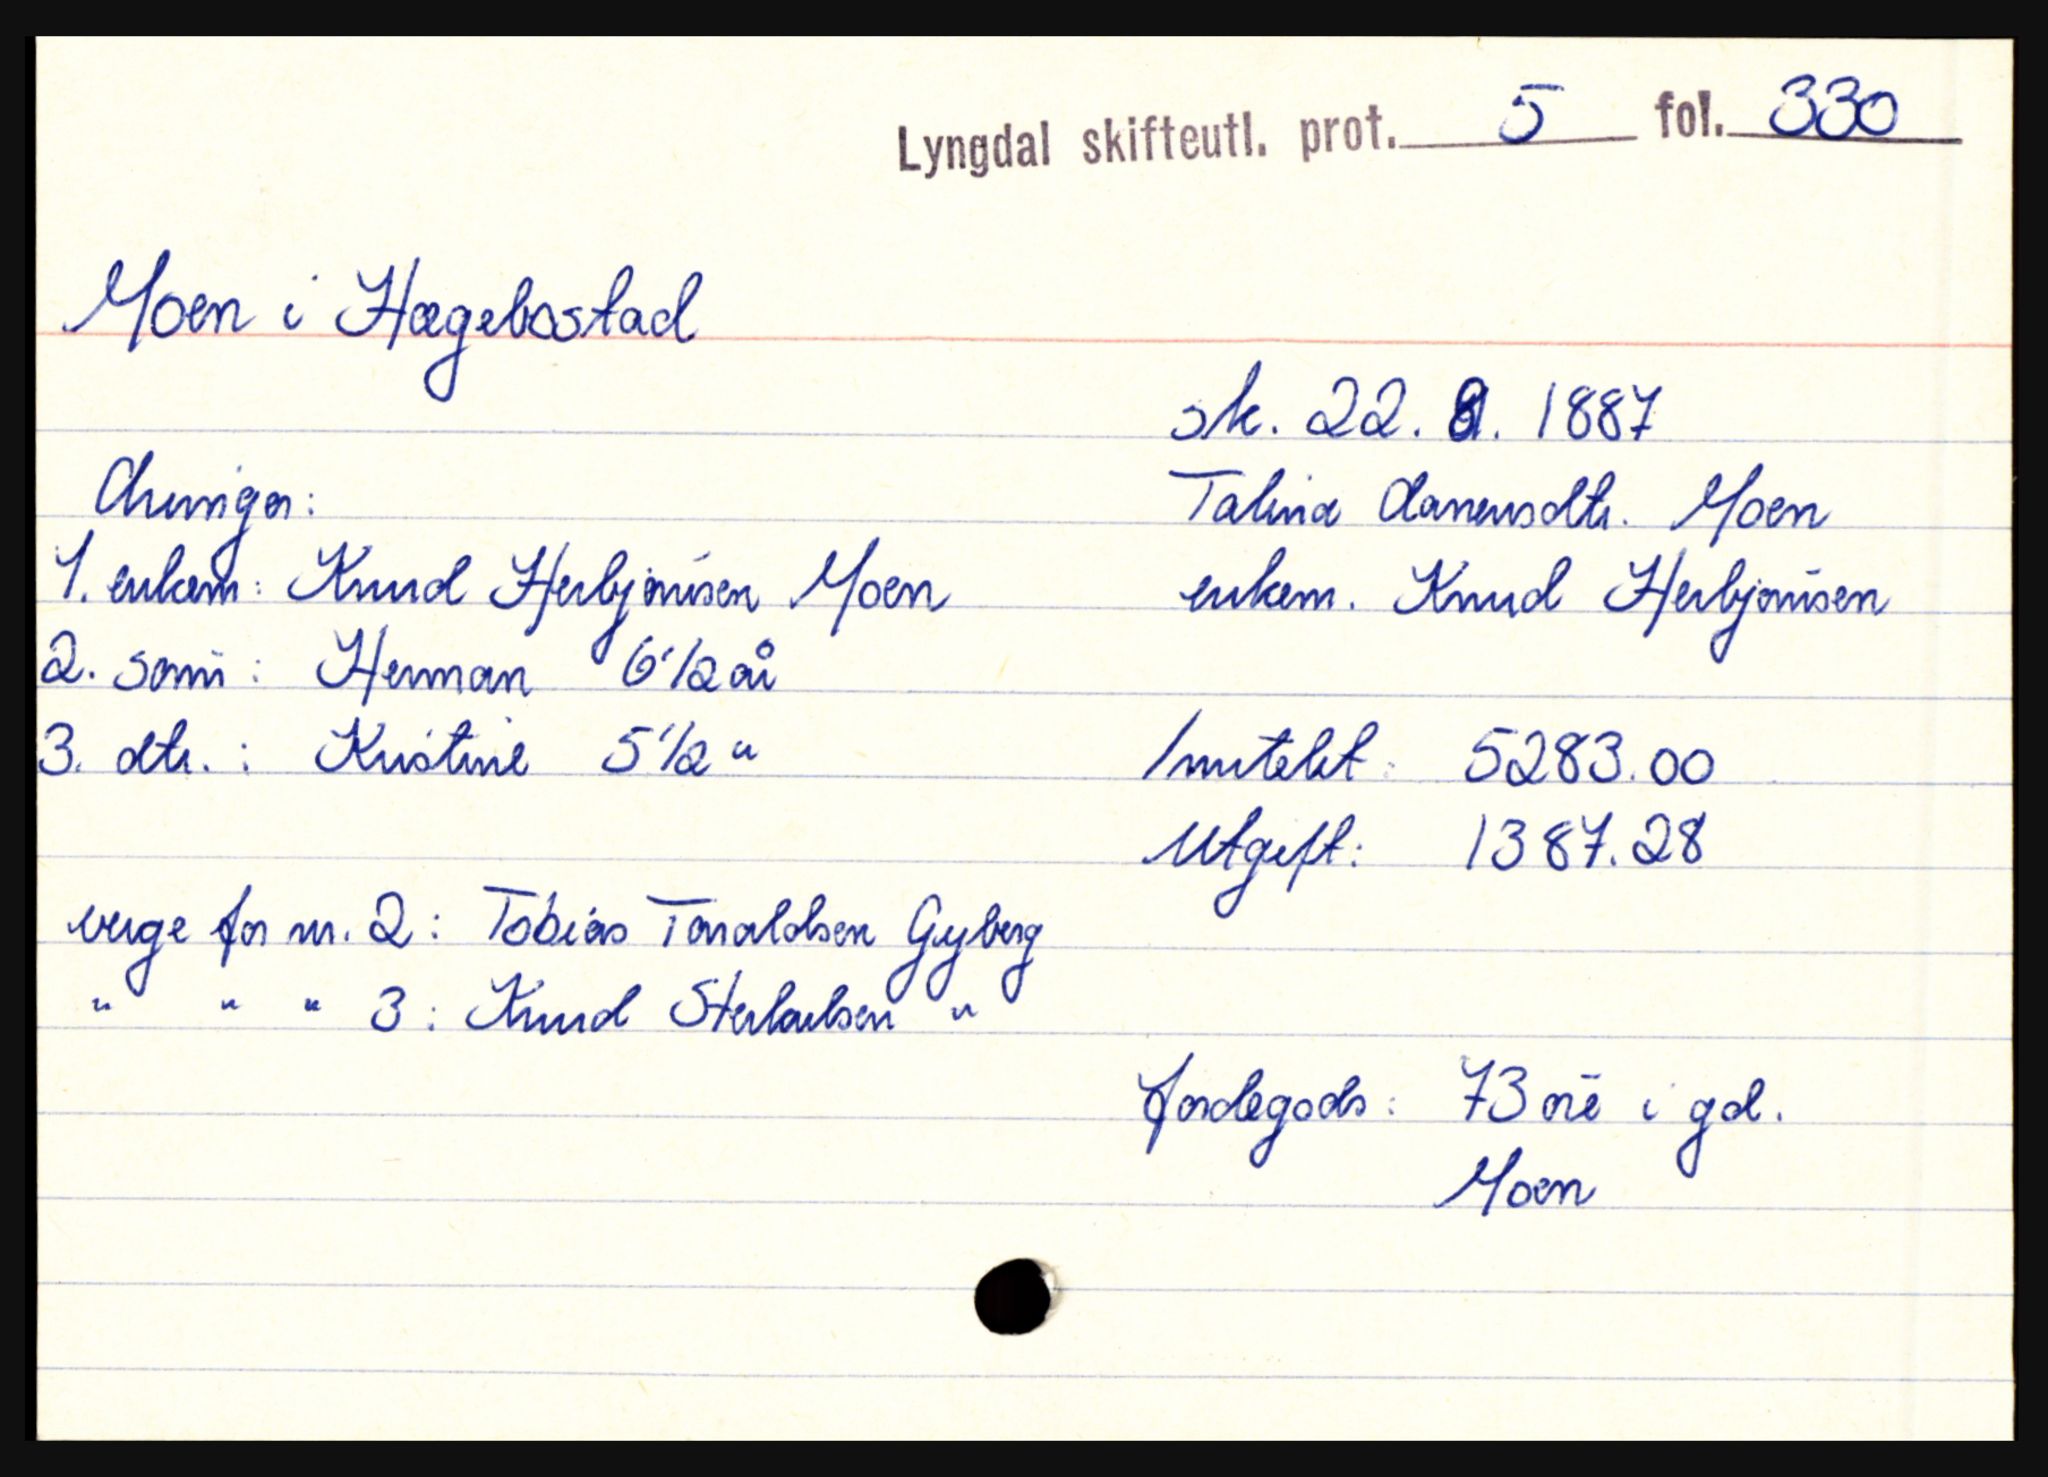 Lyngdal skifteutl. prot. 5 fol. 330
Moen i Hægebostad
sk. 22. 8. 1887
Talina Danensdtr. Moen
enkem. Knud Herbjørnsen
Arvinger:
1. enkem: Knud Herbjørnsen Moen
2. sønn: Herman 6 1/2 år
3. dtr.: Kristine 5 1/2 "
Inntekt: 5283.00
Utgift: 1387.28
verge for nr. 2: Tobias Toraldsen Gyberg
" " " 3: Knud Sterkulsen "
Jordegods: 73 øre i gd.
Moen